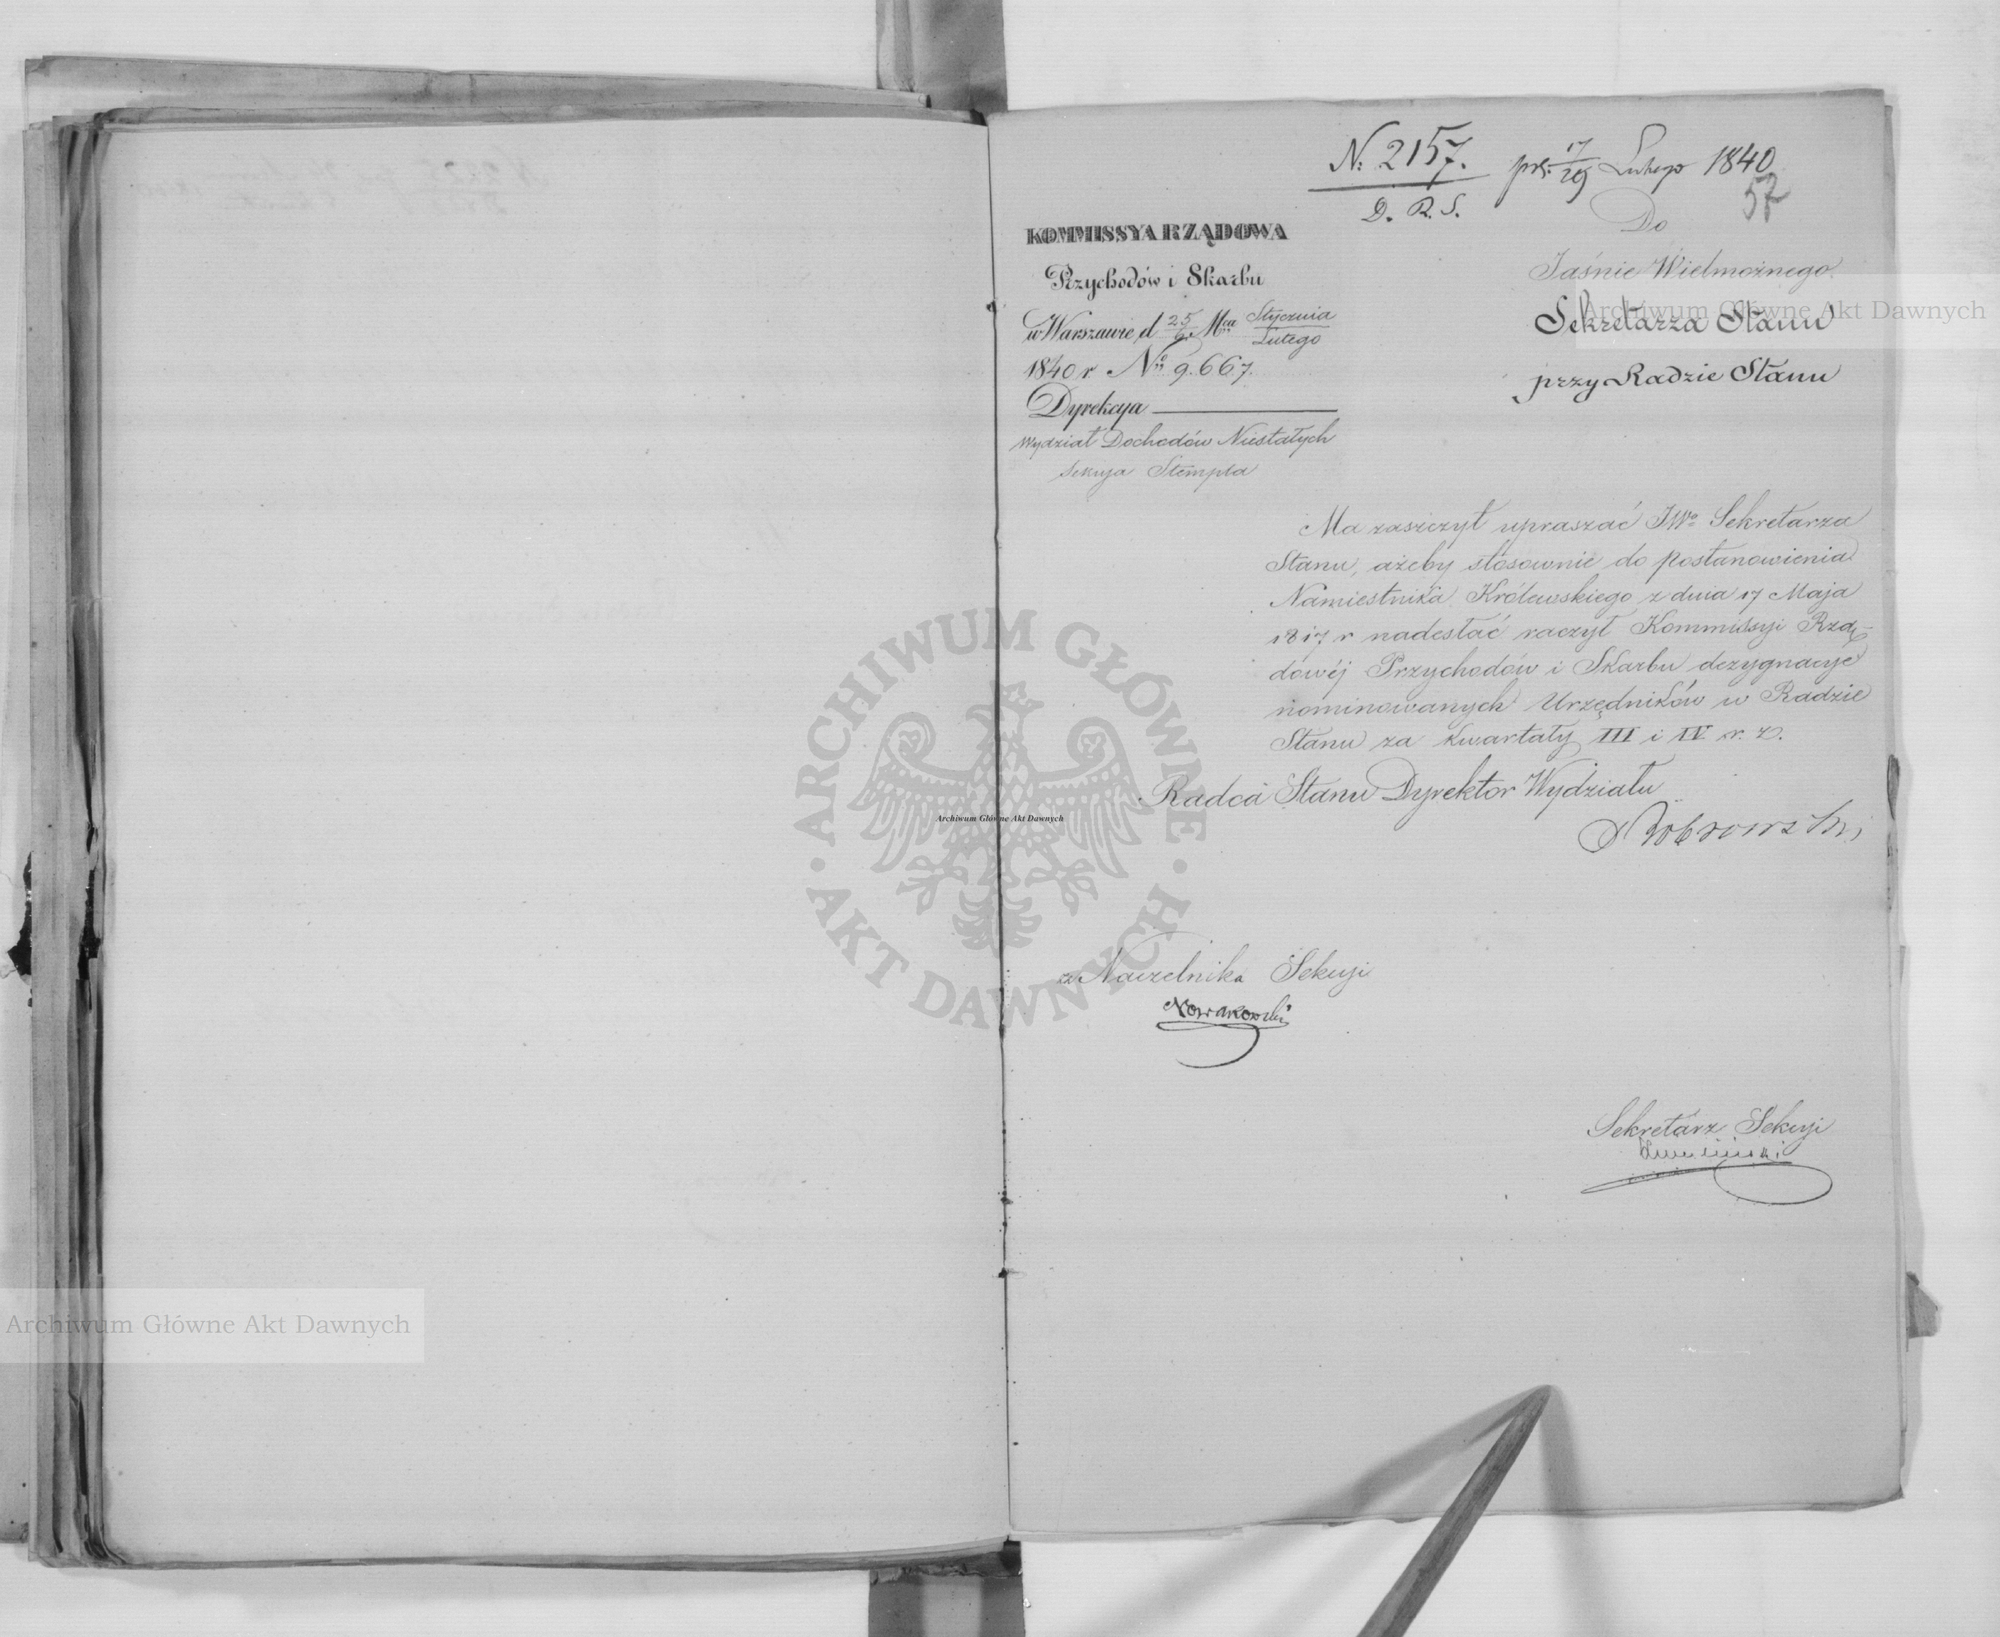 N: 2157.
D. R. S.
prs. 17/29 Lutego 1840
57
KOMMISSYA RZĄDOWA
Przychodów i Skarbu
w Warszawie d 25/6 Mca Stycznia/Lutego
1840 r No 9.667.
Dyrekcya
Wydział Dochodów Niestałych
Sekcya Stempla
Do
Jaśnie Wielmożnego
Sekretarza Stanu
przy Radzie Stanu
Ma zaszczyt upraszać JWo Sekretarza
Stanu, ażeby stósownie do postanowienia
Namiestnika Królewskiego z dnia 17 Maja
1817 r nadesłać raczył Kommissyi Rzą-
dowéj Przychodów i Skarbu dezygnacye
nominowanych Urzędników w Radzie
Stanu za kwartały III i IV r. z.
Radca Stanu Dyrektor Wydziału
z Naczelnika Sekcyi
Nowakowski
Sekretarz Sekcyi
Archiwum Główne Akt Dawnych
ARCHIWUM GŁÓWNE
AKT DAWNYCH
Archiwum Główne Akt Dawnych
Archiwum Główne Akt Dawnych